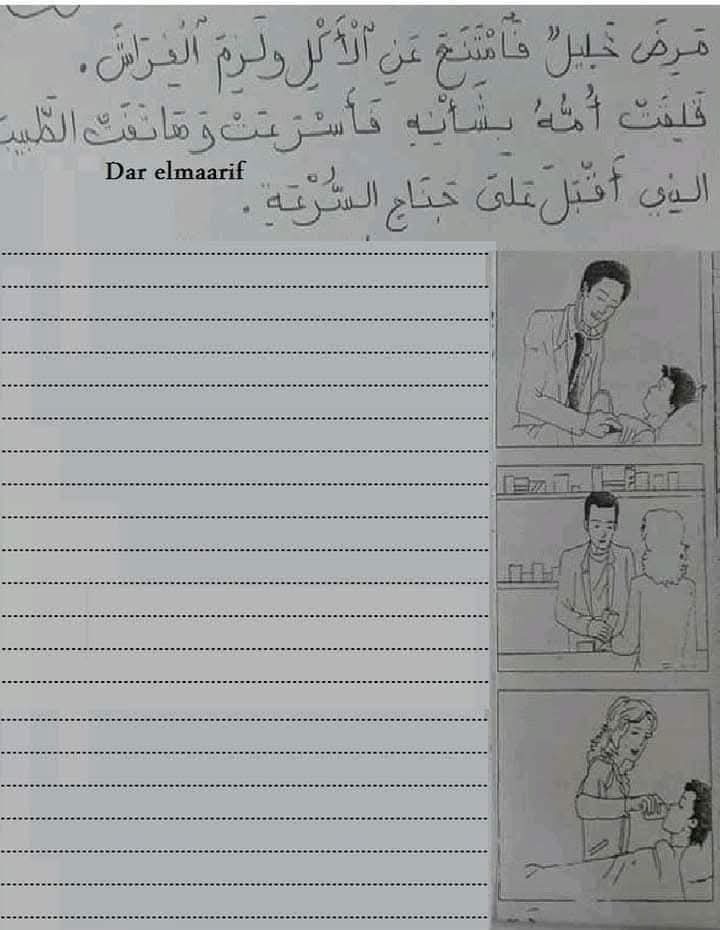 مَرِضَ خَلِيلٌ فَامْتَنَعَ عَنِ الْأَكْلِ ولَزِمَ الْفِرَاشَ .
قَلِقَتْ أُمُّهُ بِشَأْنِهِ فَأَسْرَعَتْ وَهَاتَفَتْ الطَّبِيبَ
Dar elmaarif
الذِي أَقْبَلَ عَلَىَ جَنَاحِ السُّرْعَةِ .